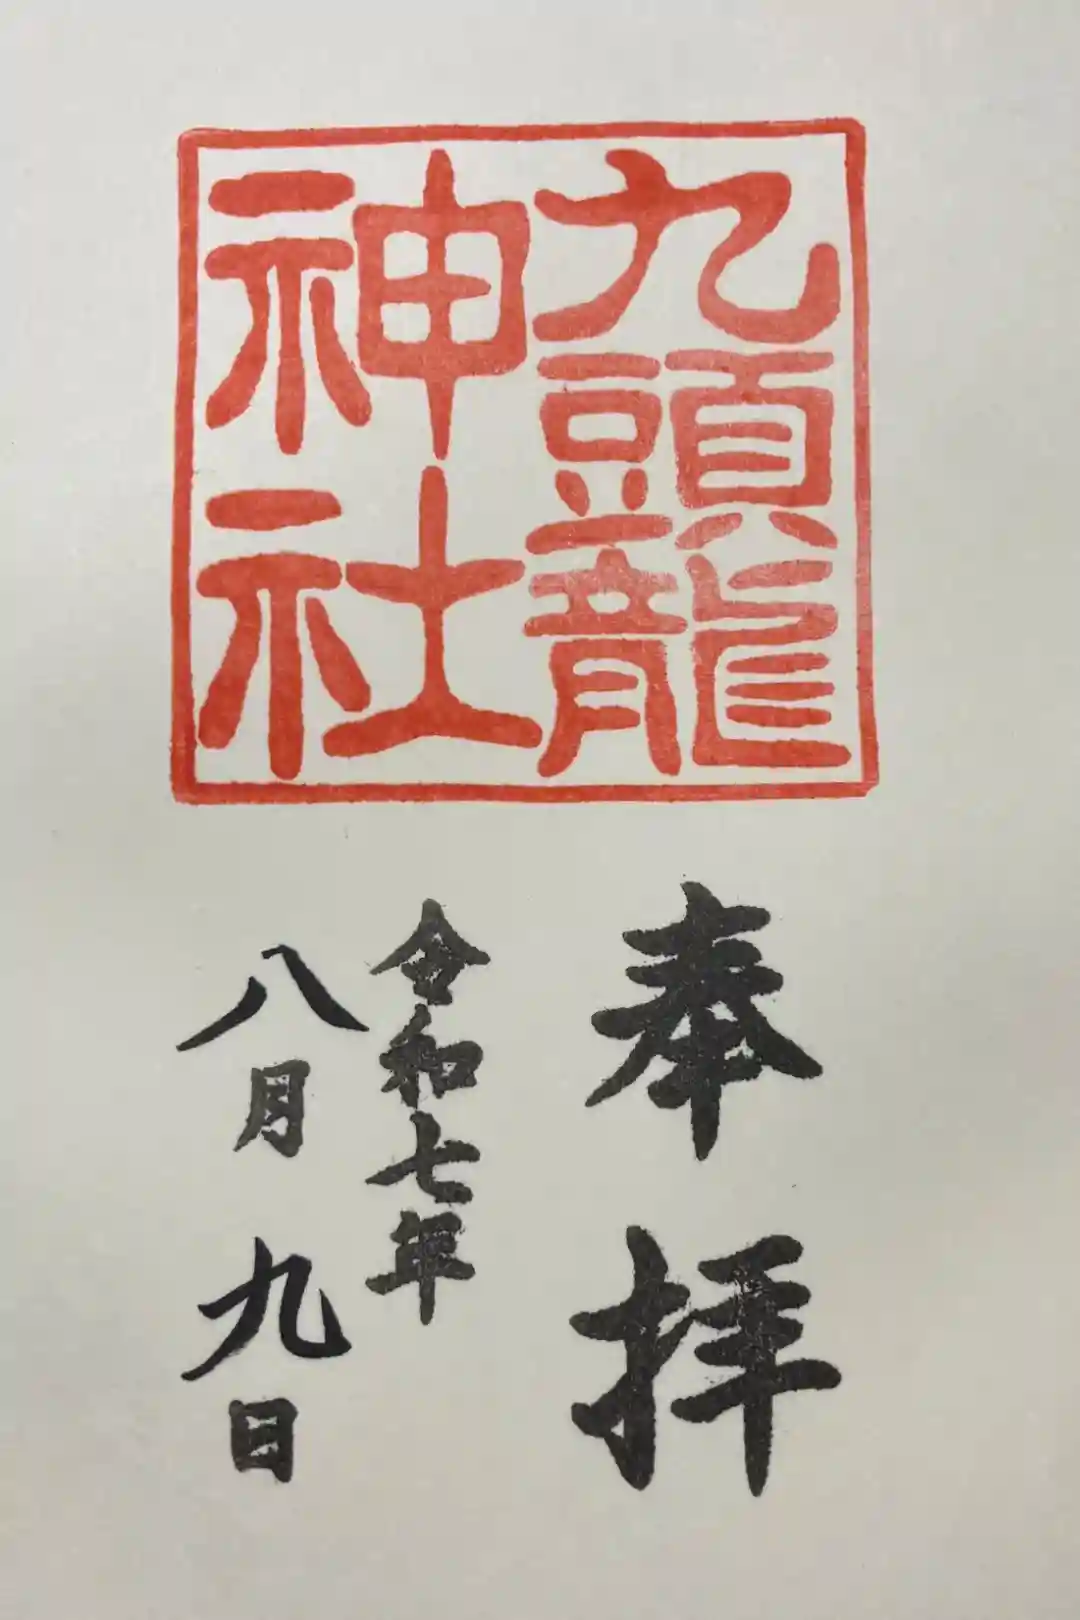 九頭龍
神社
奉拝
令和七年
八月九日